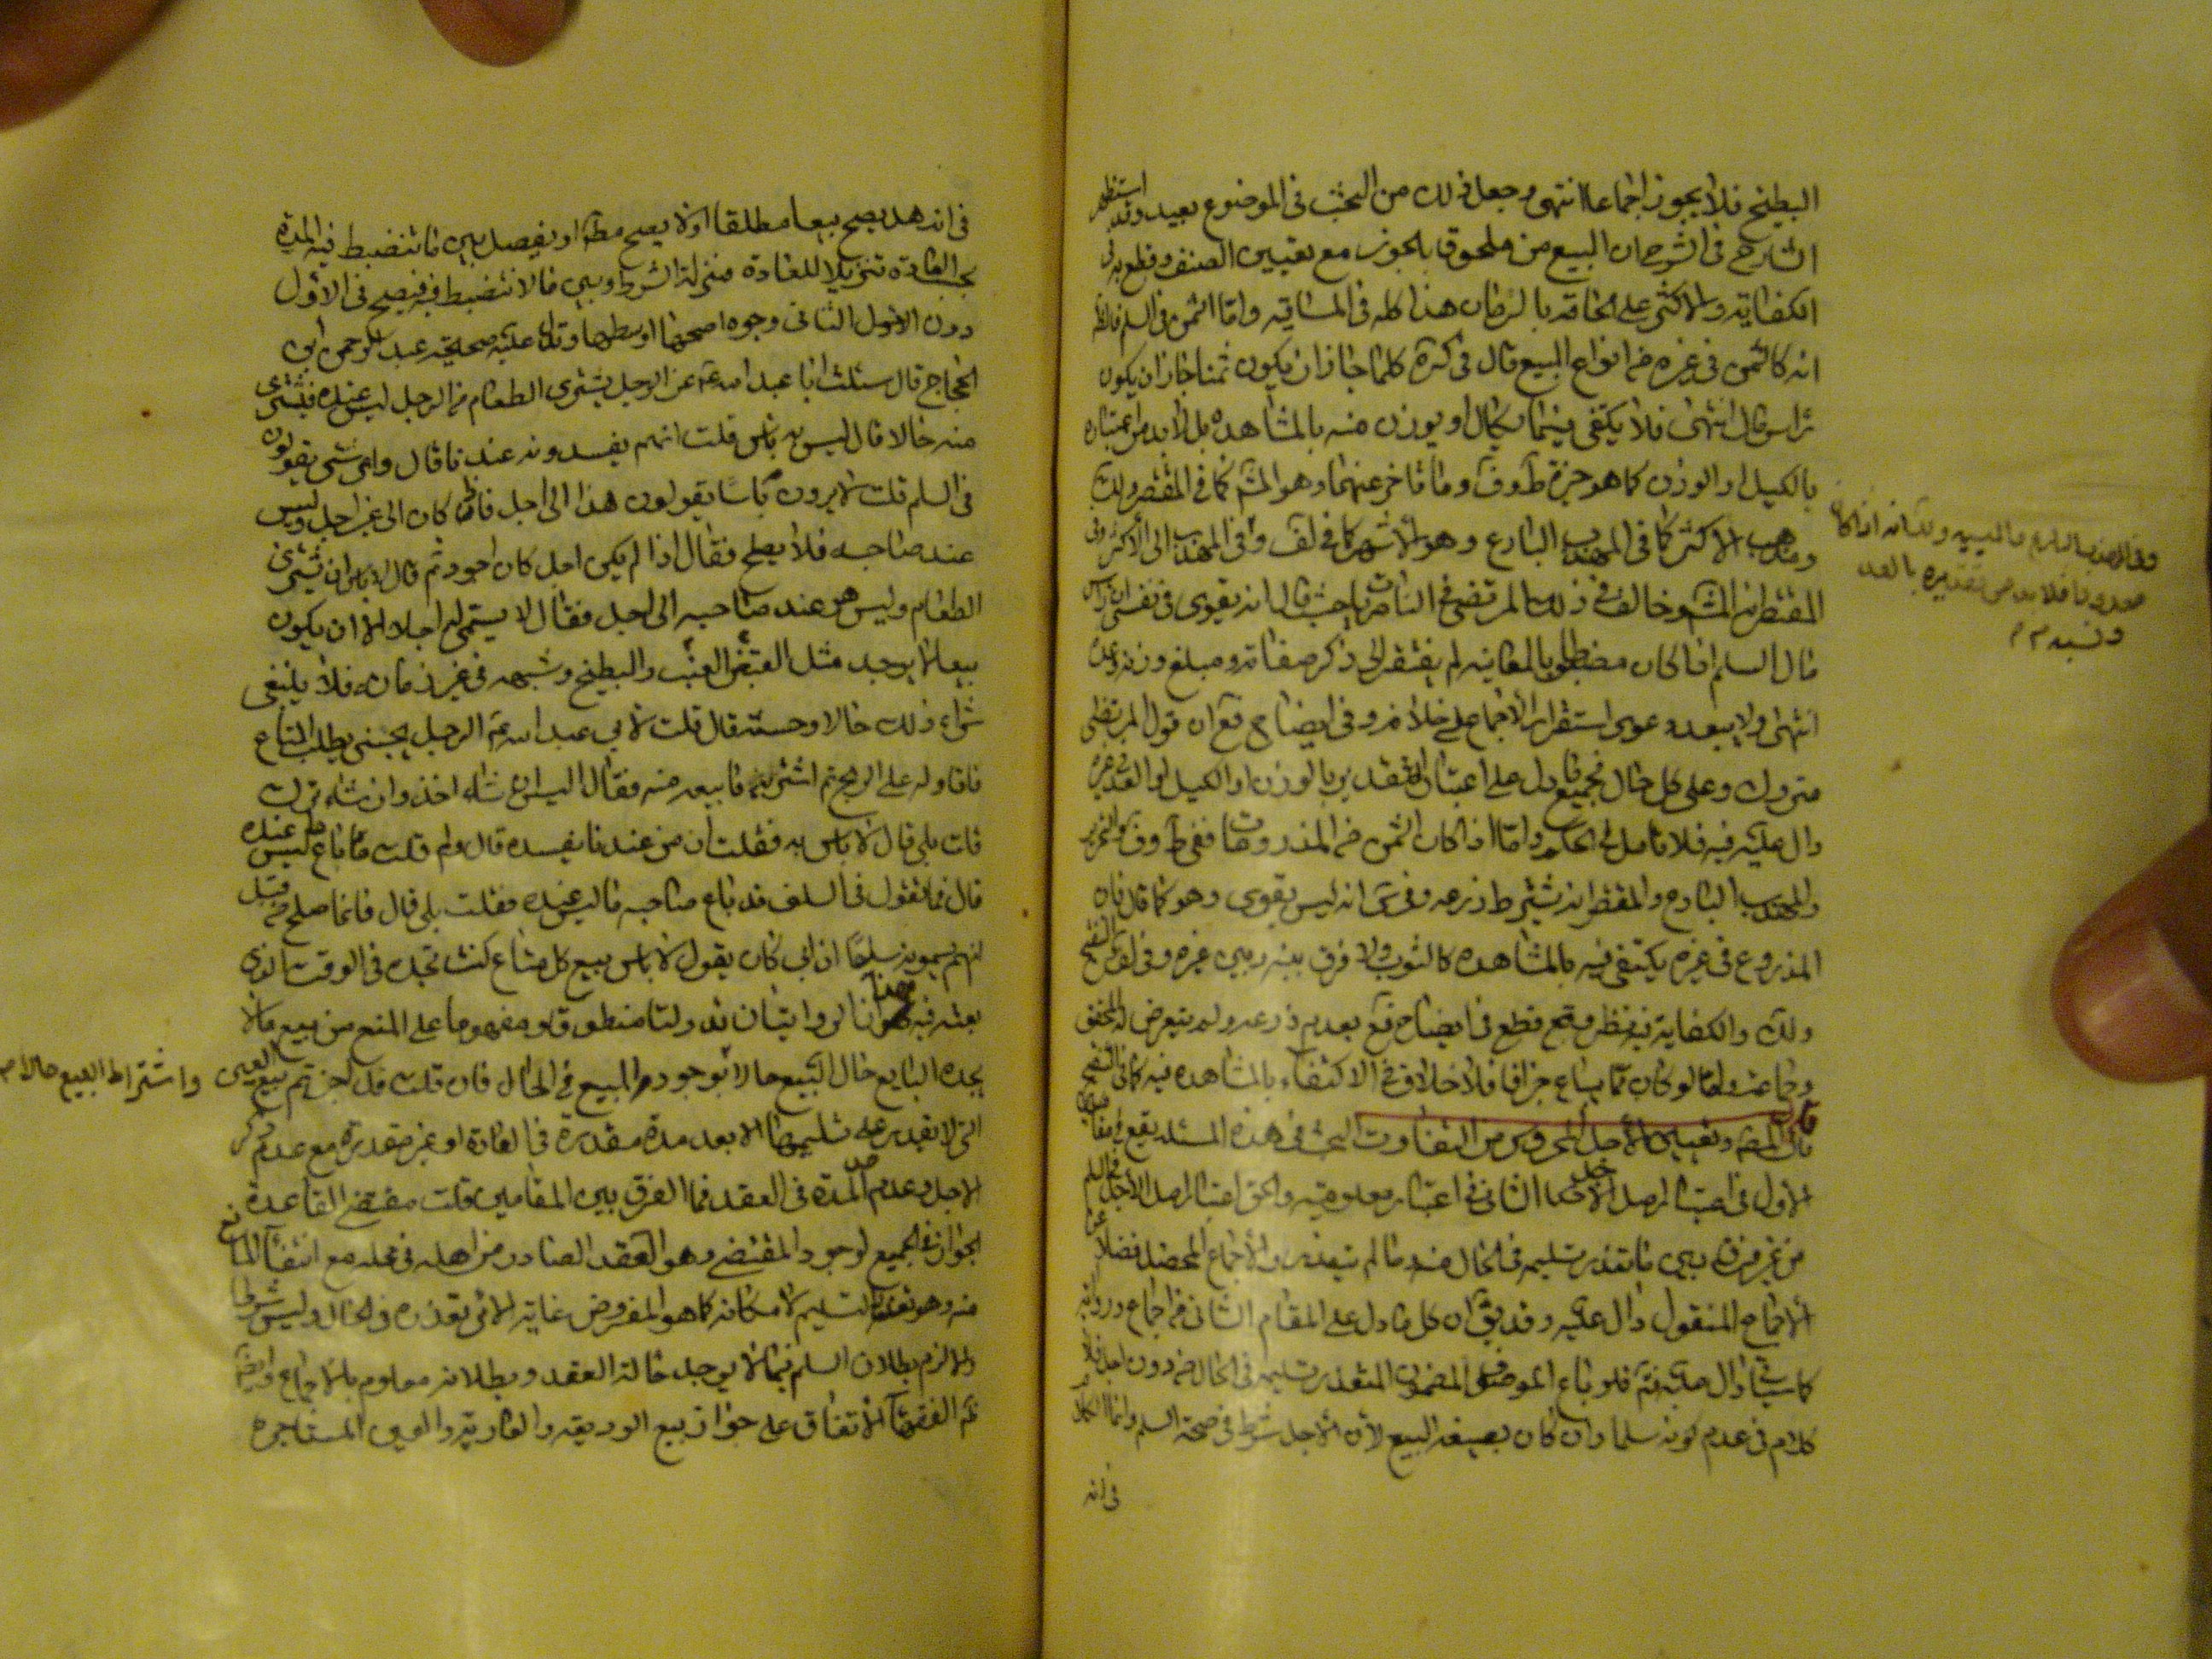 البطيخ فلا يجوز اجماعا انتهى وجعل ذلك من البحث فى الموضوع بعيد وقد استظهر
الشارح فى الشرح ان البيع من ملحوق بالجوز مع تعيين الصنف وقطع به فى
الكفاية والاكثر على الحاقه بالرمان هذا كله فى المساقيه واما الثمن فى السلم
انه كالثمن فى غيره من انواع البيع قال فى كره كلما جاز ان يكون ثمنا جاز ان يكون
راس مال انتهى فلا يكتفى فيما يكال او يوزن منه بالمشاهده بل لا بد من اعتباره
بالكيل او الوزن كما هو خيرة ط وف وما تاخر عنهما وهو المشهور كما فى المقتصر ولك
ومذهب الاكثر كما فى المهذب البارع وهو الاشهر كما فى لف وفى المهذب الى الاكثر وفى
المقتصر انه المشهور وخالف فى ذلك المرتضى فى الناصريات حيث قال انه يقوى فى نفسى ان راس
مال السلم اذا كان مضبوطا بالمعاينه لم يفتقر الى ذكر صفاته ومبلغ وزنه وعدده
انتهى ولا يبعد دعوى استقرار الاجماع على خلافه وفى ايضاح فع ان قول المرتضى
متروك وعلى كل حال فجميع ما دل على اعتبار التقدير بالوزن او الكيل او العد فى غيره
دال عليه فيه فلا تامل فى الحكم واما اذا كان الثمن من المذروعات ففى ط وف والتحرير
والمهذب البارع والمقتصر انه يشترط ذرعه وفى ئر انه ليس بقوى وهو كما قال فان
المذروع فى غيره يكتفى فيه بالمشاهده كالثوب ولا فرق بينه وبين غيره وفى التنقيح
ولك والكفاية فيه نظر وقطع فى ايضاح فع بعدم ذرعه ولم يتعرض له المحقق
وجماعة واما لو كان مما يباع جزافا فلا خلاف فى الاكتفاء بالمشاهده فيه كما فى التنقيح
قال المصنف وتعيين الاجل المحروس من التفاوت البحث فى هذه المسئله يقع فى مقامين
الاول فى اعتبار اصل الاجل الثانى فى اعتبار معلوميته والحق اعتبار اصل الاجل فى السلم
من غير فرق بين ما تعذر تسليمه فى الحال منه وما لم يتعذر والاجماع المحصل فضلا عن
الاجماع المنقول دال عليه وقد يق ان كل ما دل على المقام الثانى من اجماع ورواية
كما سياتى دال عليه ثم فلو باع الموصوف المضمون المتعذر تسليمه فى الحال من دون اجل فلا
كلام فى عدم كونه سلما وان كان بصيغة البيع لان الاجل شرط فى صحة السلم وانما الكلام
فى انه
صدونا فلا بد من تقديره بالعد
فى انه هل يصح بيعا مطلقا او لا يصح مطلقا او يفصل بين ما تنضبط فيه المدة
بحسب العادة تنزيلا للعادة منزلة الشرط وبين ما لا تنضبط فيه فيصح فى الاول
دون الثانى وجوه اصحها اوسطها وتدل عليه صحيحة عبد الرحمن ابن
الحجاج قال سئلت ابا عبد الله ع عن الرجل يشترى الطعام من الرجل ليس عنده فيشترى
منه حالا قال ليس به باس قلت انهم يفسدونه عندنا قال واى شئ يقولون
فى السلم قلت لا يرون به باسا يقولون هذا الى اجل فاذا كان الى غير اجل وليس
عند صاحبه فلا يصلح فقال اذا لم يكن اجل كان اجود ثم قال لا باس ان يشترى
الطعام وليس هو عند صاحبه الى اجل فقال لا يسمى له اجلا الا ان يكون
بيعا لا يوجد مثل العنب والبطيخ وشبهه فى غير زمانه فلا ينبغى
شراء ذلك حالا وحسنته قال قلت لابى عبد الله ع الرجل يجيئنى يطلب المتاع
فاقاوله على الربح ثم اشتريه فابيعه منه فقال اليس ان شاء اخذ وان شاء ترك
قلت بلى قال لا باس به فقلت ان من عندنا يفسده قال ولم قلت باع ما ليس عنده
قال فما يقول فى السلف قد باع صاحبه ما ليس عنده فقلت بلى قال فانما صلح من قبل
انهم يسمونه سلما ان ابى كان يقول لا باس ببيع كل متاع كنت تجده فى الوقت الذى
بعته فيه فهاتان الروايتان قد دلتا منطوقا ومفهوما على المنع من بيع ما لا
يجده البايع حال البيع حالا ووجود المبيع فى الحال فان قلت قد اجزتم بيع العين
التى لا يقدر على تسليمها الا بعد مدة مقدرة فى العادة او غير مقدرة مع عدم ذكر
الاجل وعدم المدة فى العقد فما الفرق بين المقامين قلت مقتضى القاعدة
الجواز فى الجميع لوجود المقتضى وهو العقد الصادر من اهله فى محله مع انتفاء المانع
منه وهو تعذر التسليم لامكانه كما هو المفروض غاية الامر تعذره فى الحال وليس شرطا
والا لزم بطلان السلم فيما لا يوجد حالة العقد وبطلانه معلوم بالاجماع وايضا
ثم الفقهاء الاتفاق على جواز بيع الوديعة والعارية والعين المستاجرة
واشتراط البيع حالا